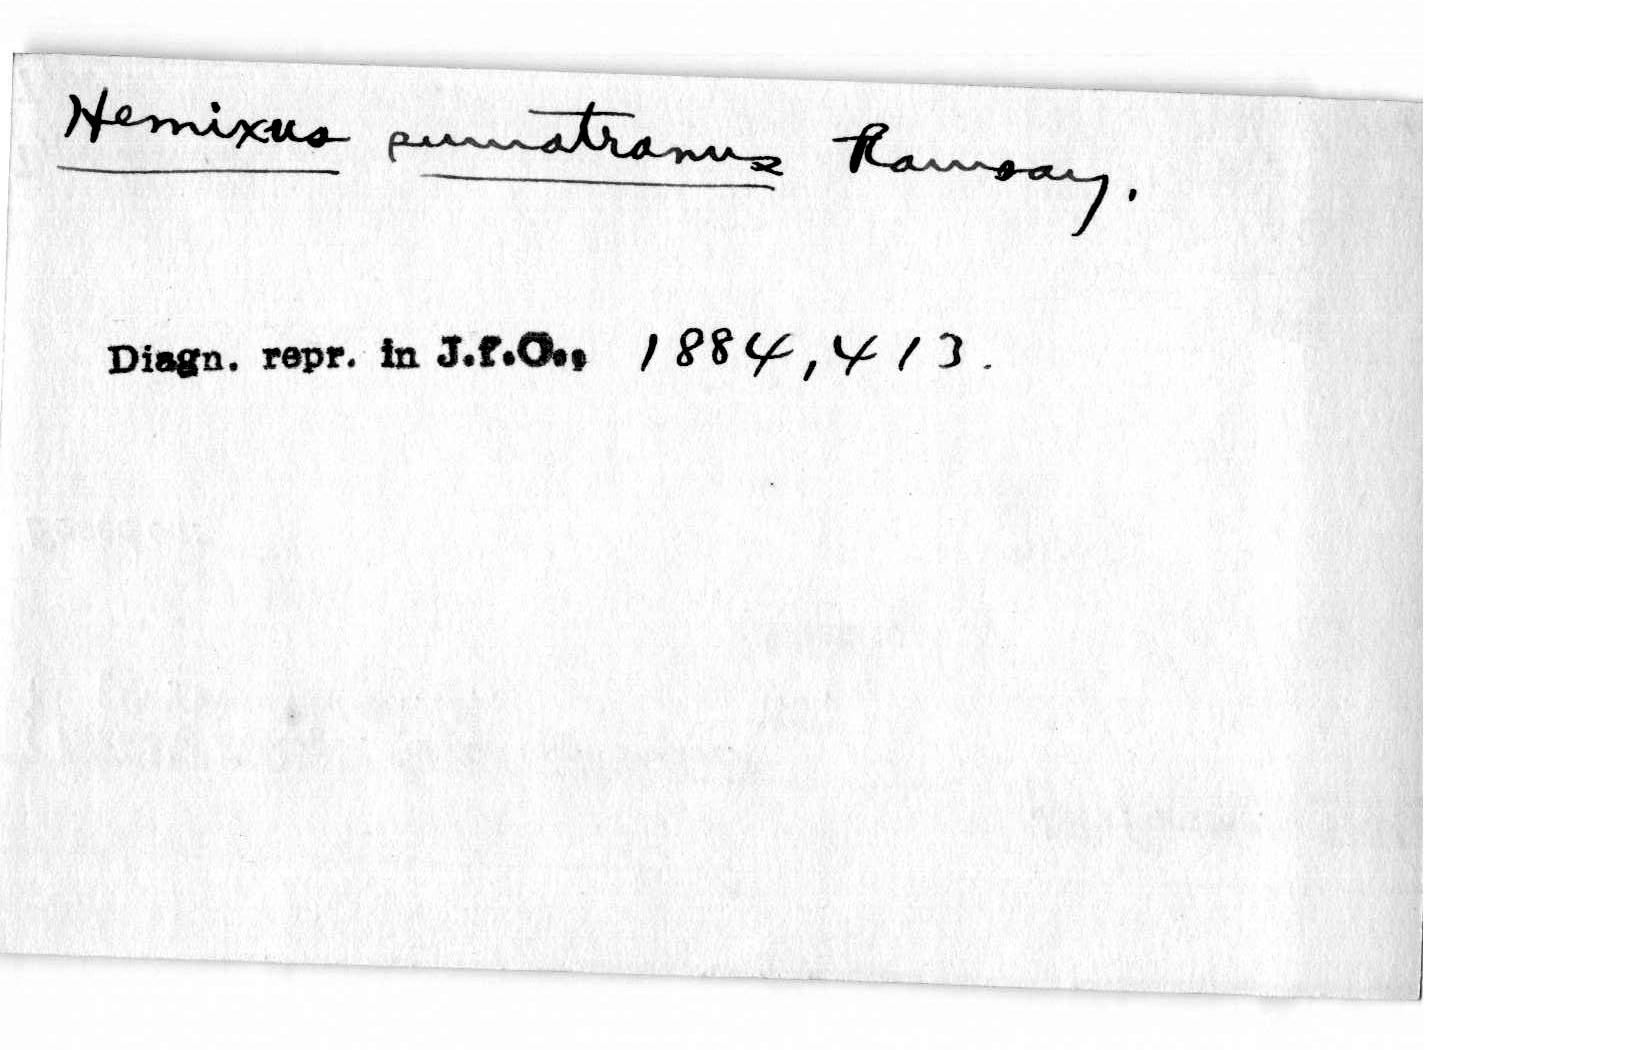 Hemixus sumatranus Ramsay.
Diagn. repr. in J.f.O., 1884, 413.